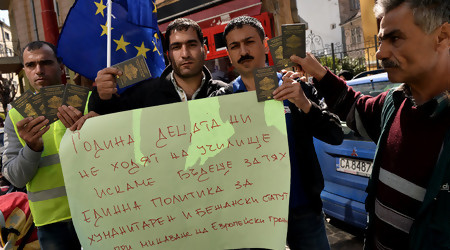 ГОДИНА ДЕЦАТА НИ
НЕ ХОДЯТ НА УЧИЛИЩЕ
ИСКАМЕ БЪДЕЩЕ ЗА ТЯХ
ЕДИННА ПОЛИТИКА ЗА
ХУМАНИТАРЕН И БЕЖАНСКИ СТАТУТ
ПРИ МИНАВАНЕ НА ЕВРОПЕЙСКИ
CA